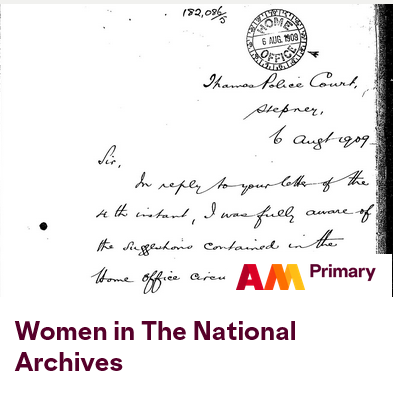 182,086/5
HOME OFFICE
6 AUG. 1909
Thames Police Court,
Stepney,
6 Augt 1909
Sir,
In reply to your letter of the
4th instant, I was fully aware of
the suggestions contained in the
Home Office circu
AM Primary
Women in The National
Archives